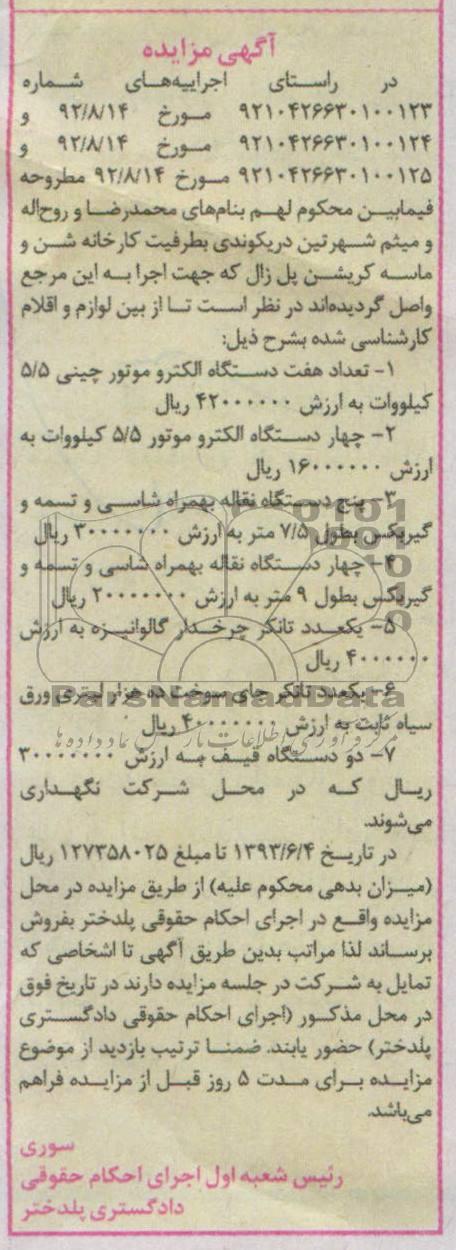 آگهی مزایده
در راستای اجراییه‌های شماره
۹۲۱۰۴۲۶۶۳۰۱۰۰۱۲۳ مورخ ۹۲/۸/۱۴ و
۹۲۱۰۴۲۶۶۳۰۱۰۰۱۲۴ مورخ ۹۲/۸/۱۴ و
۹۲۱۰۴۲۶۶۳۰۱۰۰۱۲۵ مورخ ۹۲/۸/۱۴ مطروحه
فیمابین محکوم لهم بنام‌های محمدرضا و روح‌اله
و میثم شهرتین دریکوندی بطرفیت کارخانه شن و
ماسه کریشن پل زال که جهت اجرا به این مرجع
واصل گردیده‌اند در نظر است تا از بین لوازم و اقلام
کارشناسی شده بشرح ذیل:
۱- تعداد هفت دستگاه الکترو موتور چینی ۵/۵
کیلووات به ارزش ۴۲۰۰۰۰۰۰ ریال
۲- چهار دستگاه الکترو موتور ۵/۵ کیلووات به
ارزش ۱۶۰۰۰۰۰۰ ریال
۳- پنج دستگاه نقاله بهمراه شاسی و تسمه و
گیربکس بطول ۷/۵ متر به ارزش ۳۰۰۰۰۰۰۰۰ ریال
۴- چهار دستگاه نقاله بهمراه شاسی و تسمه و
گیربکس بطول ۹ متر به ارزش ۲۰۰۰۰۰۰۰۰ ریال
۵- یکعدد تانکر چرخدار گالوانیزه به ارزش
۴۰۰۰۰۰۰۰ ریال
۶- یکعدد تانکر جای سوخت ده هزار لیتری ورق
سیاه ثابت به ارزش ۴۰۰۰۰۰۰۰ ریال
ParsNamadData
۷- دو دستگاه قیف به ارزش ۳۰۰۰۰۰۰۰
ریال که در محل شرکت نگهداری
می‌شوند.
در تاریخ ۱۳۹۳/۶/۴ تا مبلغ ۱۲۷۳۵۸۰۲۵ ریال
(میزان بدهی محکوم علیه) از طریق مزایده در محل
مزایده واقع در اجرای احکام حقوقی پلدختر بفروش
برساند لذا مراتب بدین طریق آگهی تا اشخاصی که
تمایل به شرکت در جلسه مزایده دارند در تاریخ فوق
در محل مذکور (اجرای احکام حقوقی دادگستری
پلدختر) حضور یابند. ضمنا ترتیب بازدید از موضوع
مزایده برای مدت ۵ روز قبل از مزایده فراهم
می‌باشد.
سوری
رئیس شعبه اول اجرای احکام حقوقی
دادگستری پلدختر